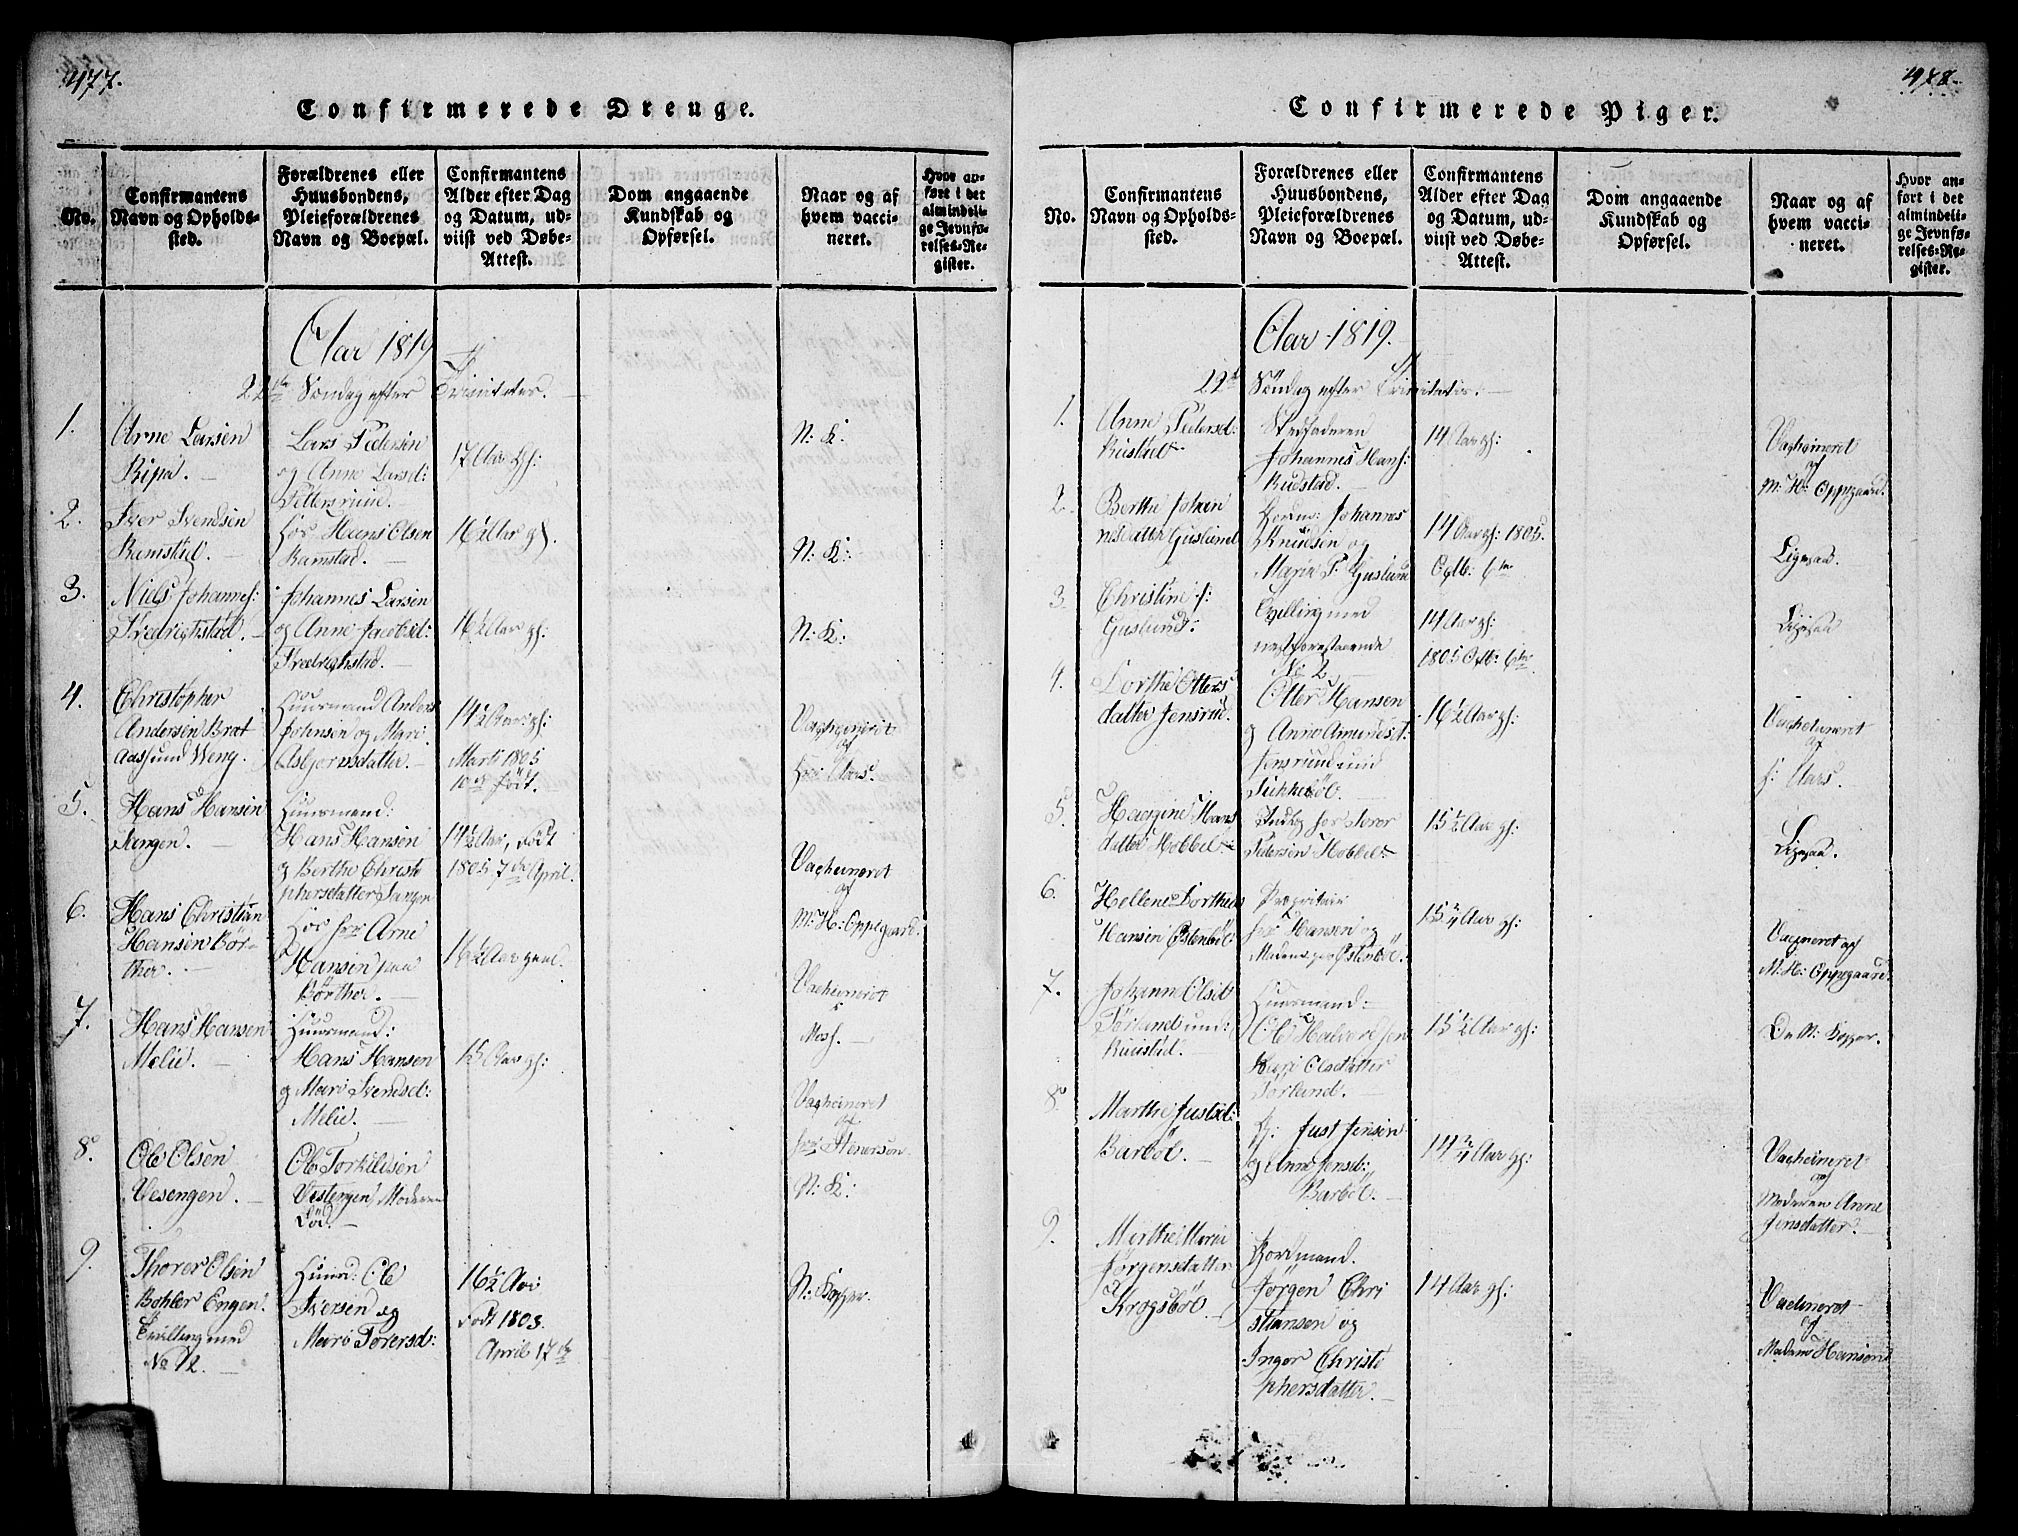 477.
Confirmerede Drenge.
No.
Confirmantens Navn og Opholds-sted.
Forældrenes eller Huusbondens, Pleieforældrenes Navn og Boepæl.
Confirmantens Alder efter Dag og Datum, ud-viist ved Døbe-Attest.
Dom angaaende Kundskab og Opførsel.
Naar og af hvem vacci-neret.
Hvor an-ført i det almindeli-ge Jevnfø-relses-Re-gister.
Aar 1819
22de Søndag efter Trinitatis.
1.
Arne Larsen
Ripa.
Lars Pedersen
og Anne Larsd:
17 Aar gl:
N: K:
2.
Iver Svendsen
Ramstad.
hos Hans Olsen
Ramstad.
16½ Aar gl.
N: K:
3.
Niels Johannes:
Fredrighstad.
Johannes Larsen
og Anne Jacobsd:
Fredrighstad.
16½ Aar gl:
N: K:
4.
Christopher
Andersen Brat
aas und Weng.
Huusmand Anders
og Mari
Asbjørnsdatter.
14½ Aar gl:
Marti 1805
10de født.
Vaccineret
af
hr: Aars.
5.
Hans Hansen
Tangen.
Huusmand:
Hans Hansen
og Berthe Christo
phersdatter Tangen
14½ Aar, født
1805 7de April.
Vaccineret
af
M: H: Oppegaard.
6.
Hans Christian
Hansen Bør-
ther.
hos hr: Arne
Hansen paa
Børther.
16½ Aar gaml.
Vaccineret
7.
Hans Hansen
Melie.
Huusmand:
Hans Hansen
og Mari Svendsd:
Melie.
15 Aar gl:
Vaccineret
af
8.
Ole Olsen
Vesengen.
Ole Torkildsen
Vestengen, Moderen
Død.
N: K:
9.
Thorer Olsen
Bohler Engen.
Tvilling med
No 12.
Huusd: Ole
Iversen og
Mari Torersd:
16½ Aar
Født 1803.
April 17de
N: Kopper.
478.
Confirmerede Piger.
No.
Confirmantens Navn og Opholds-sted.
Forældrenes eller Huusbondens, Pleieforældrenes Navn og Boepæl.
Confirmantens Alder efter Dag og Datum, ud-viist ved Døbe-Attest.
Dom angaaende Kundskab og Opførsel.
Naar og af hvem vacci-neret.
Hvor an-ført i det almindeli-ge Jevnfø-relses-Re-gister.
Aar 1819.
22de Søndag efter Trinitatis.
1.
Anne Pedersd:
Rustad
Stedfaderen
Johannes Hans:
Rudstad.
14 Aar gl:
Vaccineret
af
M: H: Oppgaard.
2.
Berthe Johan
nesdatter Guslund
Johannes
Knudsen og
Marie P. Guslund
14 Aar gl: 1805.
Octb: 6te
Ligesaa.
3.
Christine J:
Guslund:
Tvilling med
næstforestaaende
No 2.
14 Aar gl:
1805 Octb: 6te
Ligesaa
4.
Dorthe Otters
datter Jensrud.
Otter Hansen
og Anne Amundsd:
Jensrud und
16½ Aar gl:
Vaccineret
af
h: Aars.
5.
Hans
datter Hobbel
hos Iver
Pedersen Hobbel:
15½ Aar gl:
Ligesaa.
6.
Hellene Dorthea
Hansen Østenbøl
Proprietair
hr: Hansen og
Østenbøl.
15 Aar gl:
Vaccineret af
M: H: Oppegaard.
7.
Johanne Olsd
Tørland und:
Rustad.
Huusmand:
Ole Halvorsen
Kari Olsdatter
Tørland.
15½ Aar gl:
De N: Kopper.
8.
Marthe Justsd:
Barbøl.
Just Jensen
og Anne Jensd:
Barbøl.
14 Aar gl:
Vaccineret
af
Moderen Anne
Jensdatter.
9.
Marthe Marie
Jørgensdatter
Krogsbøl
Jordmand.
Jørgen Chri
stiansen og
Inger Christo
phersdatter.
14 Aar gl:
Vaccineret
af
Madam Hansen